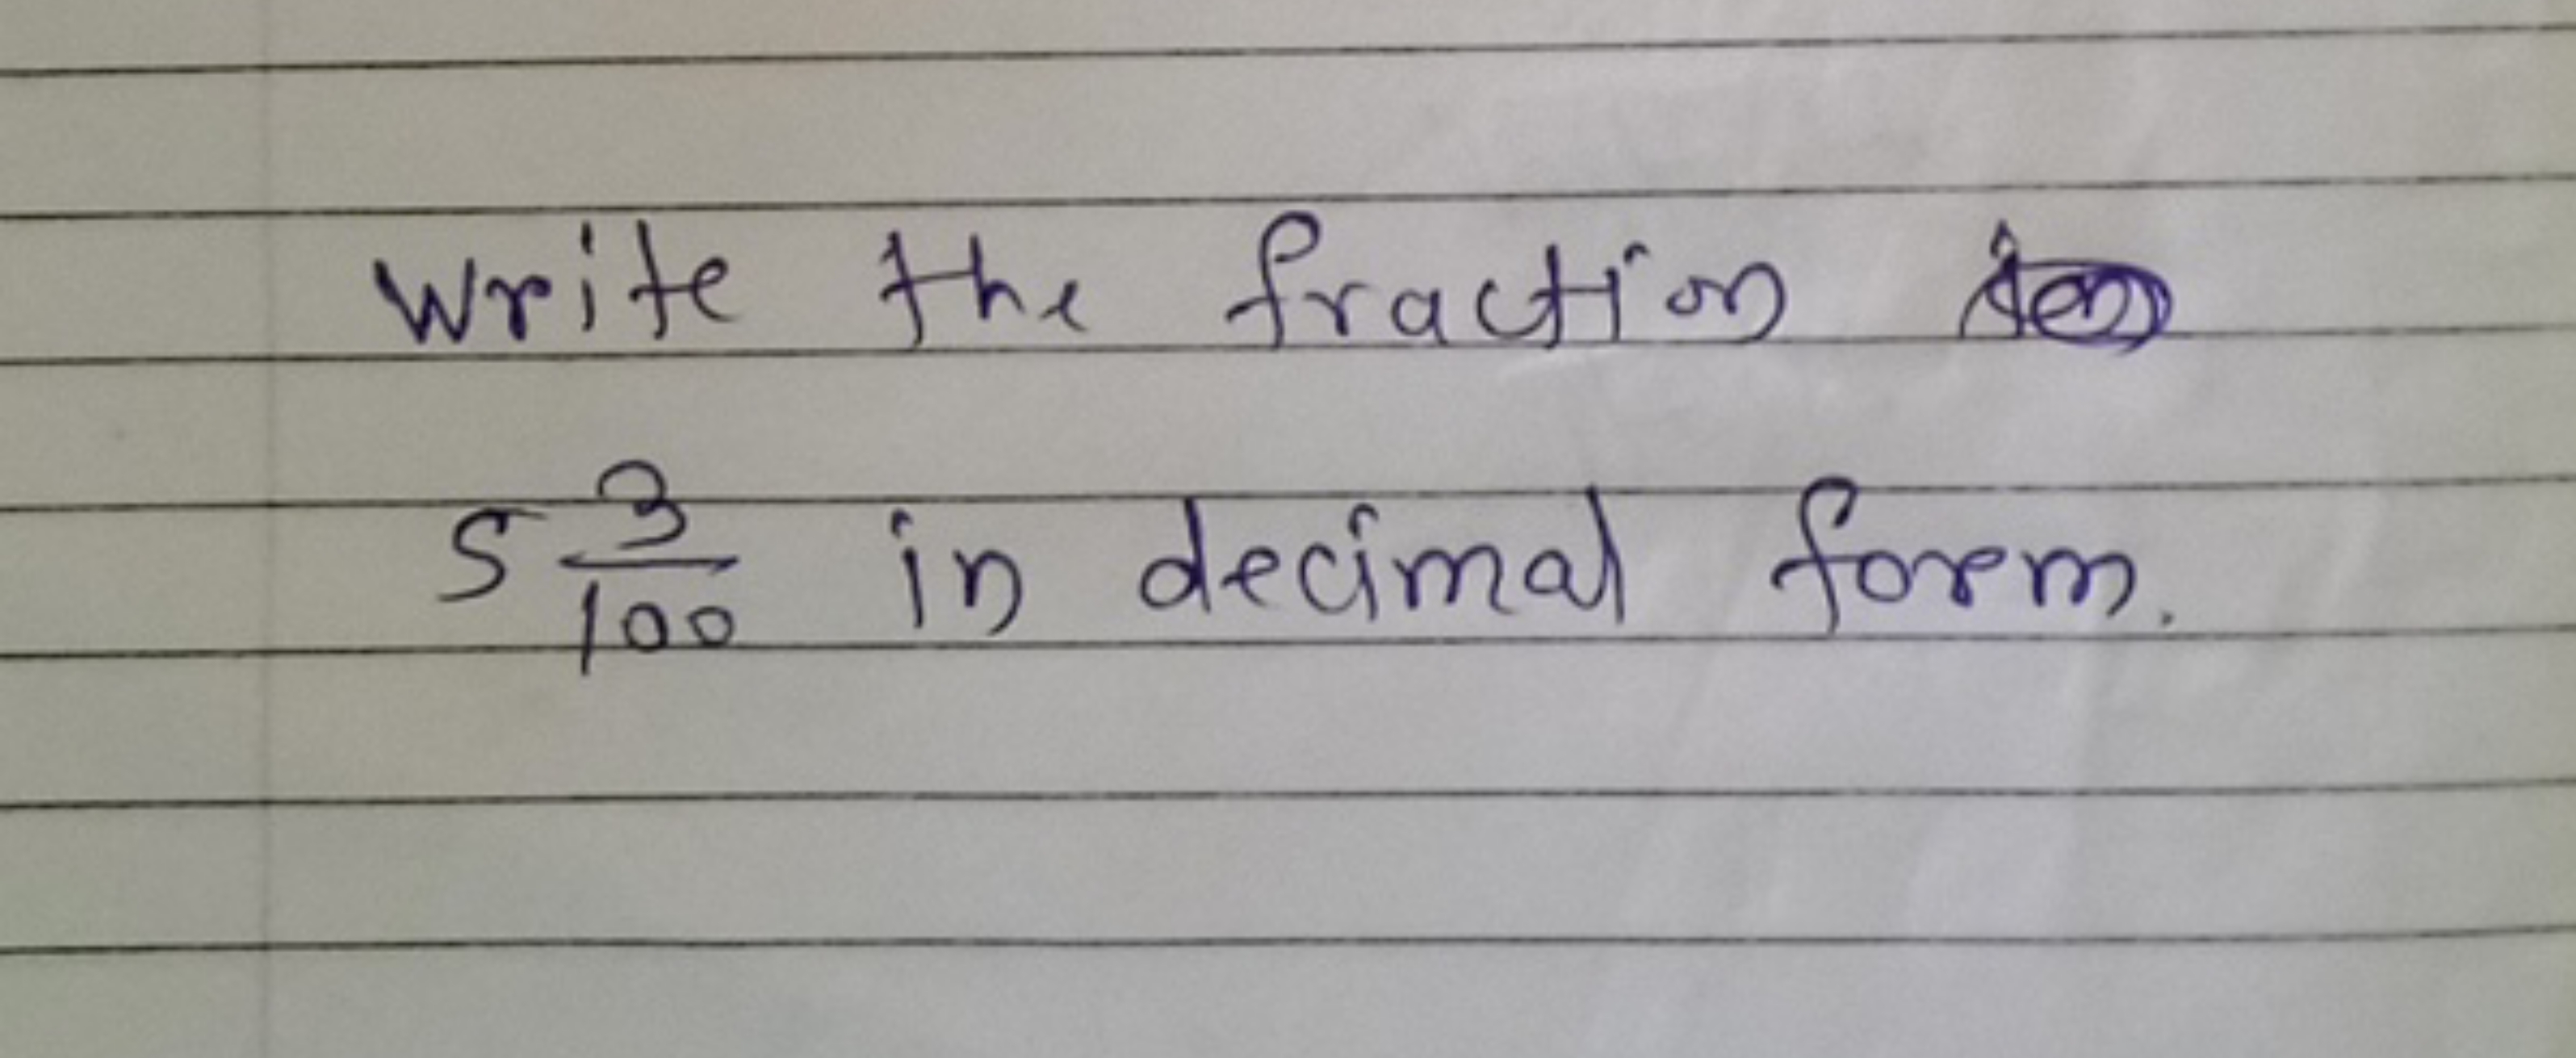 Write the fraction
5 3/100 in decimal form.